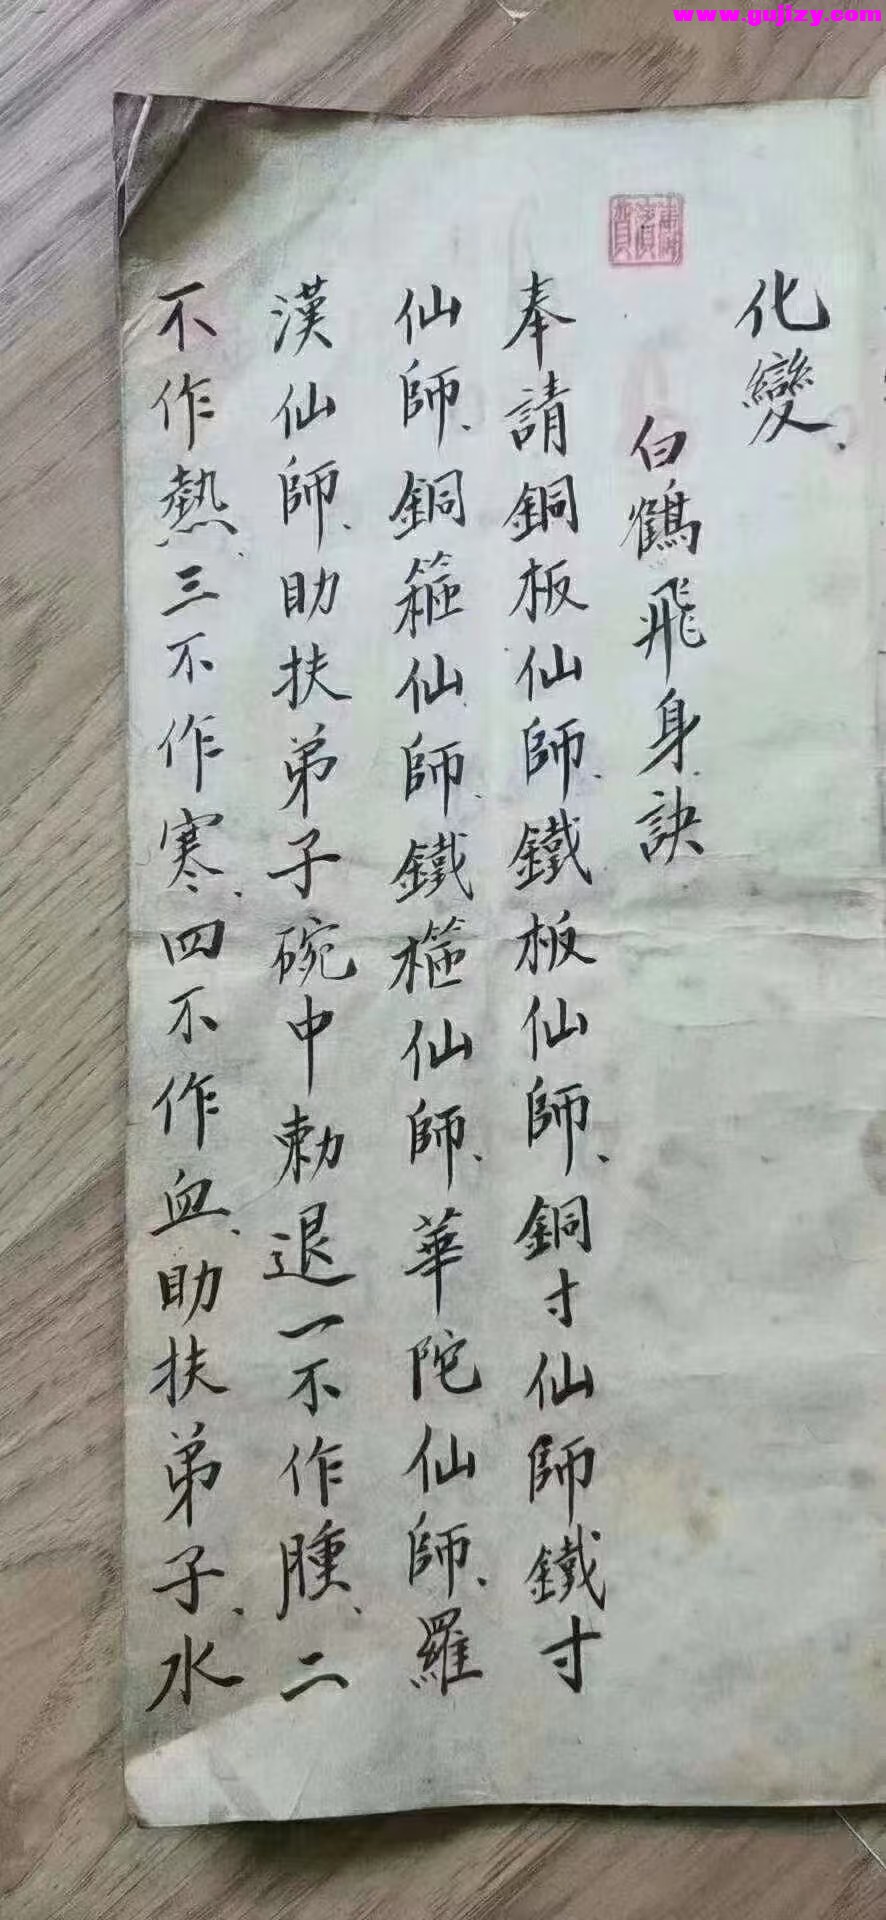 www.gujizy.com
化變、
白鶴飛身訣
奉請銅板仙師、鐵板仙師、銅寸仙師鐵寸
仙師、銅箍仙師、鐵箍仙師、華陀仙師、羅
漢仙師、助扶弟子碗中勅退一不作腫、二
不作熱、三不作寒、四不作血、助扶弟子、水